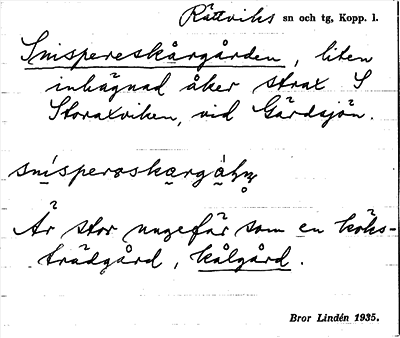 Rättviks sn och tg, Kopp. l.
Snispereskårgården, liten
inhägnad åker strax S
Storaxviken, vid Gärdsjön.
Är stor ungefär som en köks-
trädgård, kålgård.
Bror Lindén 1935.